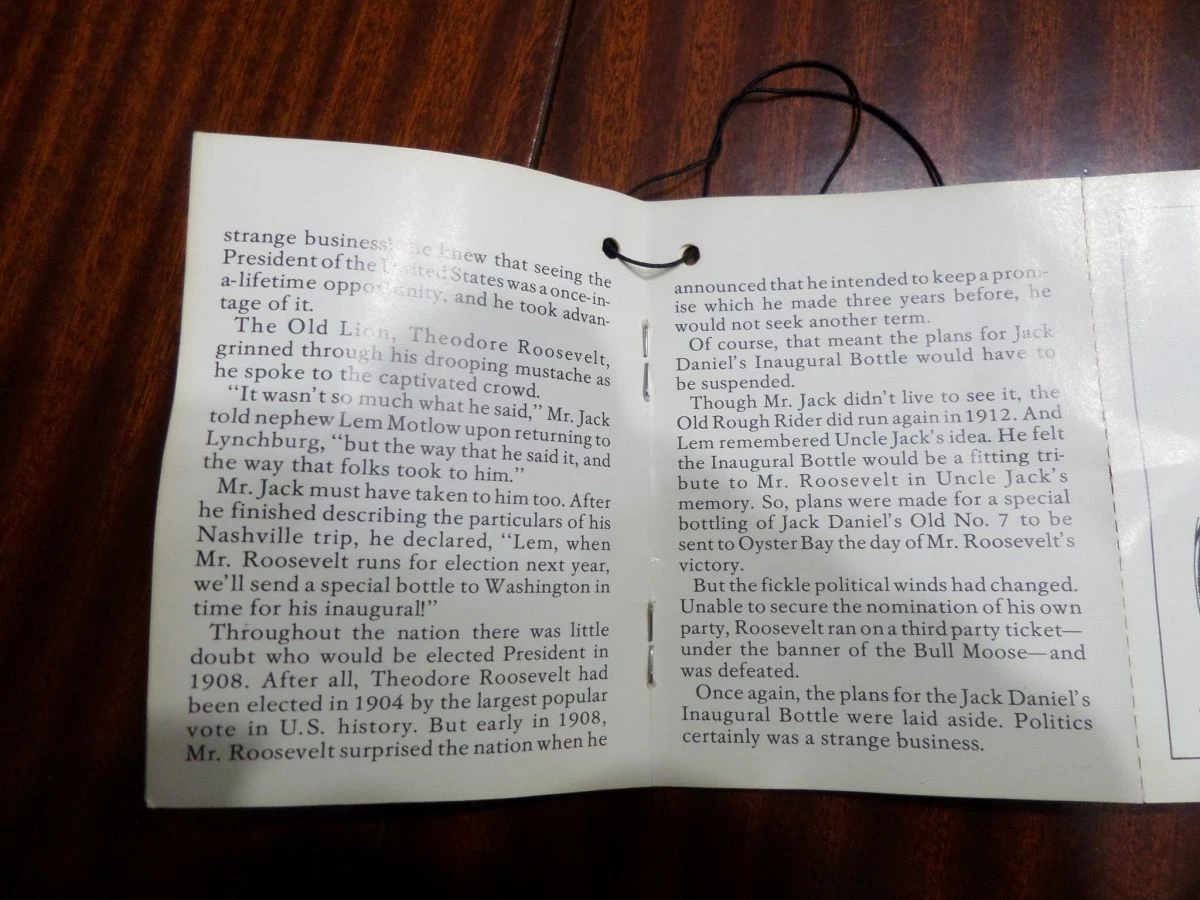 strange business, he knew that seeing the
President of the United States was a once-in-
a-lifetime opportunity, and he took advan-
tage of it.
The Old Lion, Theodore Roosevelt,
grinned through his drooping mustache as
he spoke to the captivated crowd.
"It wasn't so much what he said," Mr. Jack
told nephew Lem Motlow upon returning to
Lynchburg, "but the way that he said it, and
the way that folks took to him."
Mr. Jack must have taken to him too. After
he finished describing the particulars of his
Nashville trip, he declared, "Lem, when
Mr. Roosevelt runs for election next year,
we'll send a special bottle to Washington in
time for his inaugural!"
Throughout the nation there was little
doubt who would be elected President in
1908. After all, Theodore Roosevelt had
been elected in 1904 by the largest popular
vote in U.S. history. But early in 1908,
Mr. Roosevelt surprised the nation when he
announced that he intended to keep a prom-
ise which he made three years before, he
would not seek another term.
Of course, that meant the plans for Jack
Daniel's Inaugural Bottle would have to
be suspended.
Though Mr. Jack didn't live to see it, the
Old Rough Rider did run again in 1912. And
Lem remembered Uncle Jack's idea. He felt
the Inaugural Bottle would be a fitting tri-
bute to Mr. Roosevelt in Uncle Jack's
memory. So, plans were made for a special
bottling of Jack Daniel's Old No. 7 to be
sent to Oyster Bay the day of Mr. Roosevelt's
victory.
But the fickle political winds had changed.
Unable to secure the nomination of his own
party, Roosevelt ran on a third party ticket—
under the banner of the Bull Moose—and
was defeated.
Once again, the plans for the Jack Daniel's
Inaugural Bottle were laid aside. Politics
certainly was a strange business.